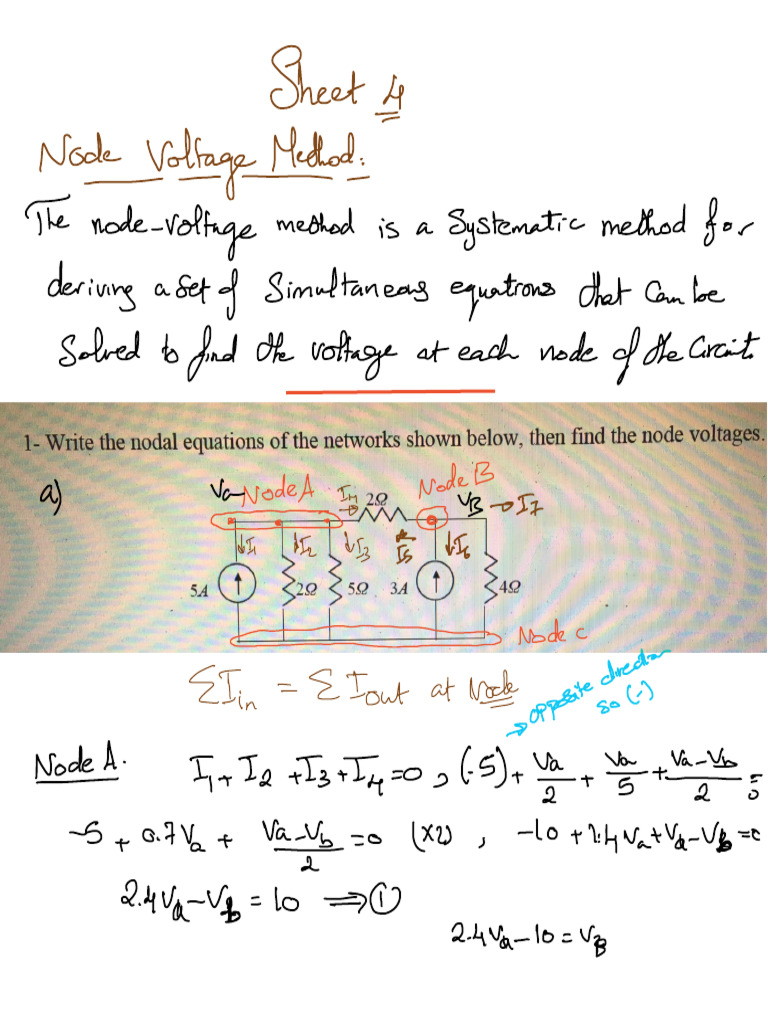 Sheet 4
Node Voltage Method:
The node-voltage method is a Systematic method for
deriving a set of Simultaneous equations that can be
Solved to find the voltage at each node of the Circuit.
1- Write the nodal equations of the networks shown below, then find the node voltages.
a)
Va Node A I4 2Ω Node B
VB → I7
↓I1 ↓I2 ↓I3 I5 ↓I6
5A 2Ω 5Ω 3A 4Ω
Node C
ΣIin = ΣIout at Node
→ opposite direction
so (-)
Node A. I1 + I2 + I3 + I4 = 0 , (-5) + Va/2 + Va/5 + (Va-Vb)/2 = 0
-5 + 0.7Va + (Va-Vb)/2 = 0 (x2) , -10 + 1.4Va + Va - Vb = 0
2.4Va - Vb = 10 ⟹ ①
2.4Va - 10 = VB